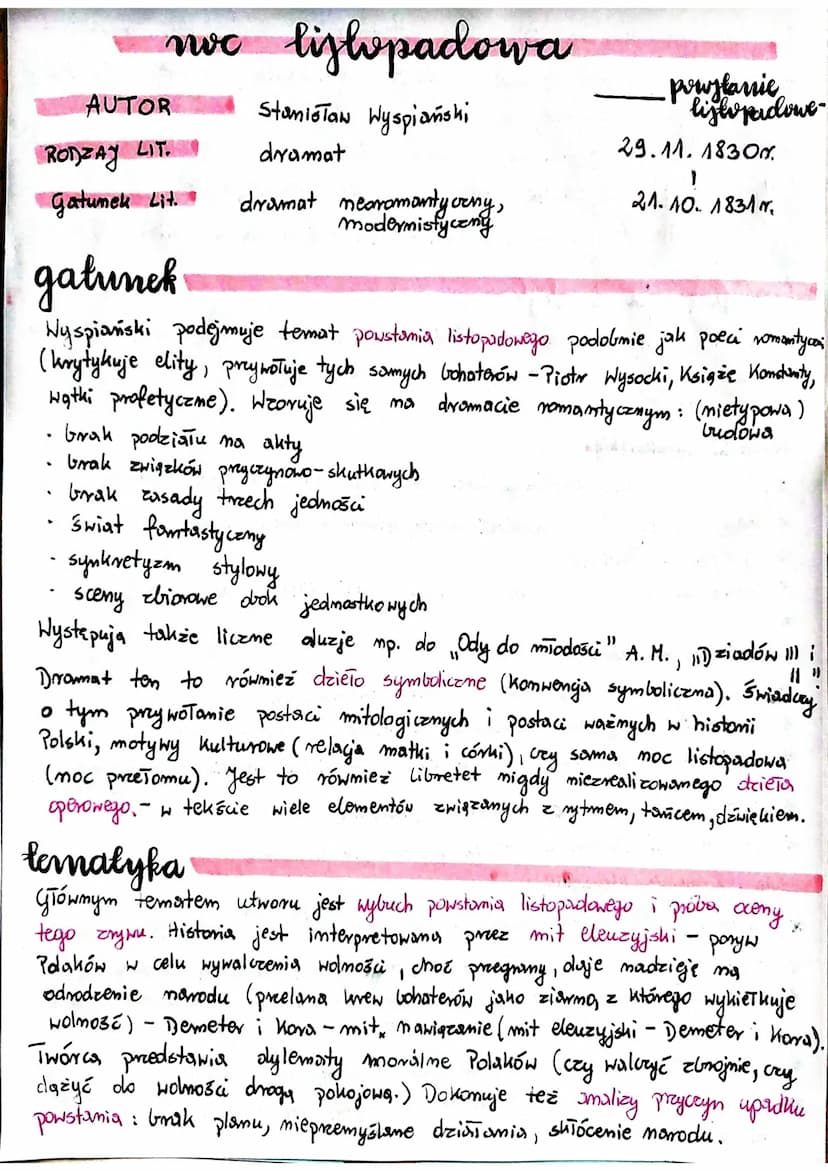 noc listopadowa
AUTOR Stanisław Wyspiański
powstanie listopadowe -
RODZAJ LIT. dramat
29.11.1830r.
|
21.10.1831r.
Gatunek Lit. dramat neoromantyczny,
modernistyczny
gatunek
Wyspiański podejmuje temat powstania listopadowego podobnie jak poeci romantyczni
(krytykuje elity, przywołuje tych samych bohaterów - Piotr Wysocki, Książę Konstanty,
wątki profetyczne). Wzoruje się na dramacie romantycznym: (nietypowa)
budowa
· brak podziału na akty
· brak związków przyczynowo-skutkowych
· brak zasady trzech jedności
· świat fantastyczny
· synkretyzm stylowy
· sceny zbiorowe obok jednostkowych
Występują także liczne aluzje np. do „Ody do młodości" A.M., „Dziadów III i
II"
Dramat ten to również dzieło symboliczne (konwencja symboliczna). Świadczy
o tym przywołanie postaci mitologicznych i postaci ważnych w historii
Polski, motywy kulturowe (relacja matki i córki), czy sama noc listopadowa
(noc przełomu). Jest to również libretet nigdy niezrealizowanego dzieła
operowego. - w tekście wiele elementów związanych z rytmem, tańcem, dźwiękiem.
tematyka
Głównym tematem utworu jest wybuch powstania listopadowego i próba oceny
tego zrywu. Historia jest interpretowana przez mit eleuzyjski - poryw
Polaków w celu wywalczenia wolności, choć przegrany, daje nadzieję na
odrodzenie narodu (przelana krew bohaterów jako ziarno, z którego wykiełkuje
wolność) - Demeter i Kora - mit. nawiązanie (mit eleuzyjski - Demeter i Kora).
Twórca przedstawia dylematy moralne Polaków (czy walczyć zbrojnie, czy
dążyć do wolności drogą pokojową.) Dokonuje też analizy przyczyn upadku
powstania: brak planu, nieprzemyślane działania, skłócenie narodu.